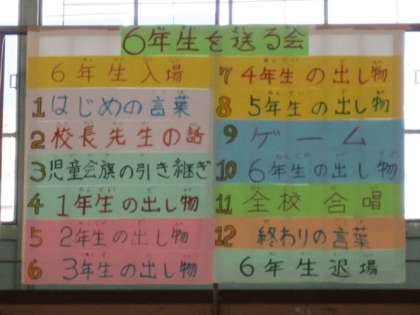 6年生を送る会
6年生入場
1 はじめの言葉
2 校長先生の話
3 児童会旗の引き継ぎ
4 1年生の出し物
5 2年生の出し物
6 3年生の出し物
7 4年生の出し物
8 5年生の出し物
9 ゲーム
10 6年生の出し物
11 全校合唱
12 終わりの言葉
6年生退場